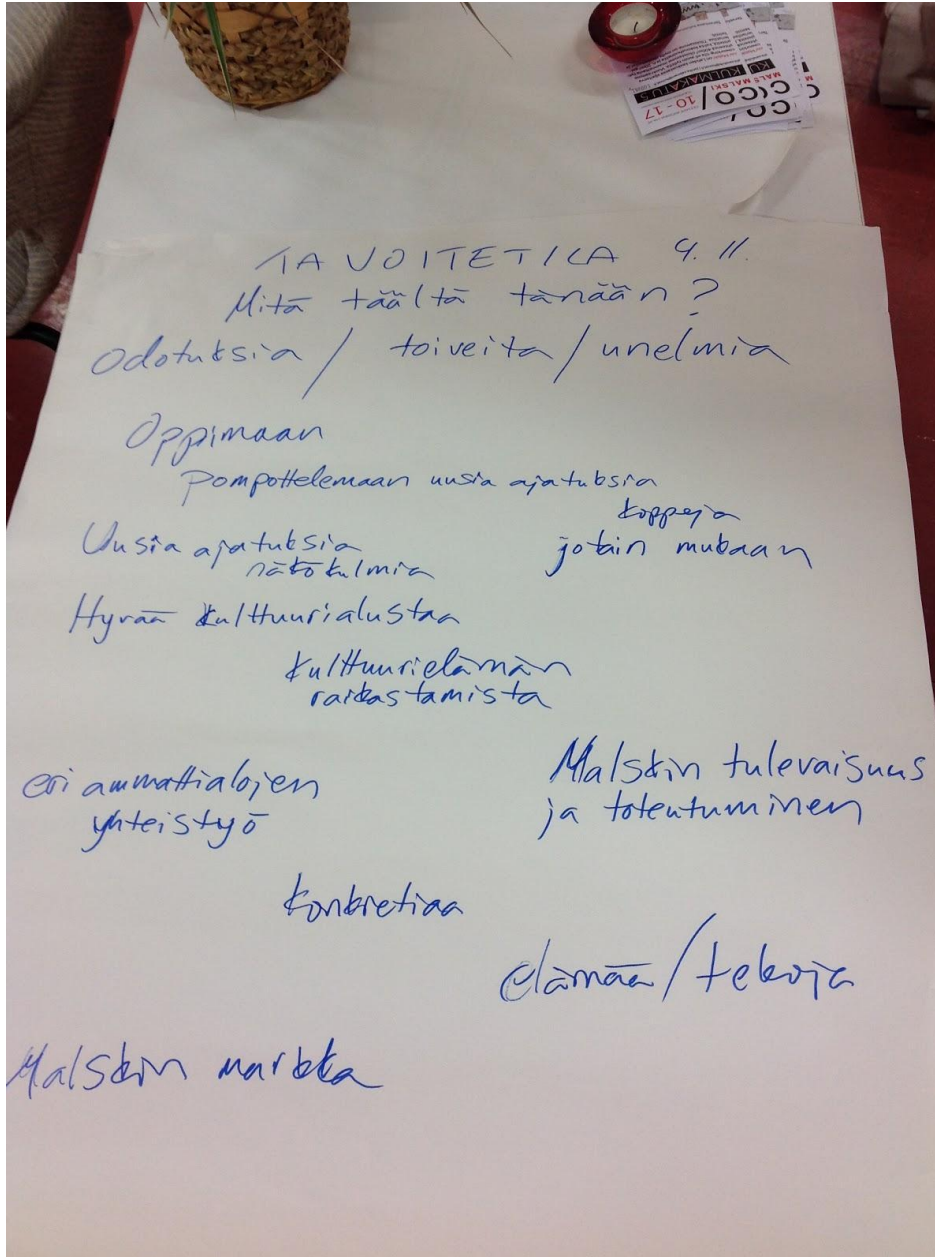 10 - 17
CICO/
MALSKI
KULMAKATU 5
TAVOITETILA 4.11.
Mitä täältä tänään?
Odotuksia / toiveita / unelmia
Oppimaan
pompottelemaan uusia ajatuksia
koppeja
Uusia ajatuksia
jotain mukaan
näkökulmia
Hyvää kulttuurialustaa
kulttuurielämän
raikastamista
eri ammattialojen
yhteistyö
Malskin tulevaisuus
ja toteutuminen
konkretiaa
elämää / tekoja
Malskin markka